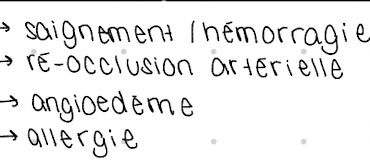 → saignement / hémorragie
→ ré-occlusion artérielle
→ angioedème
→ allergie